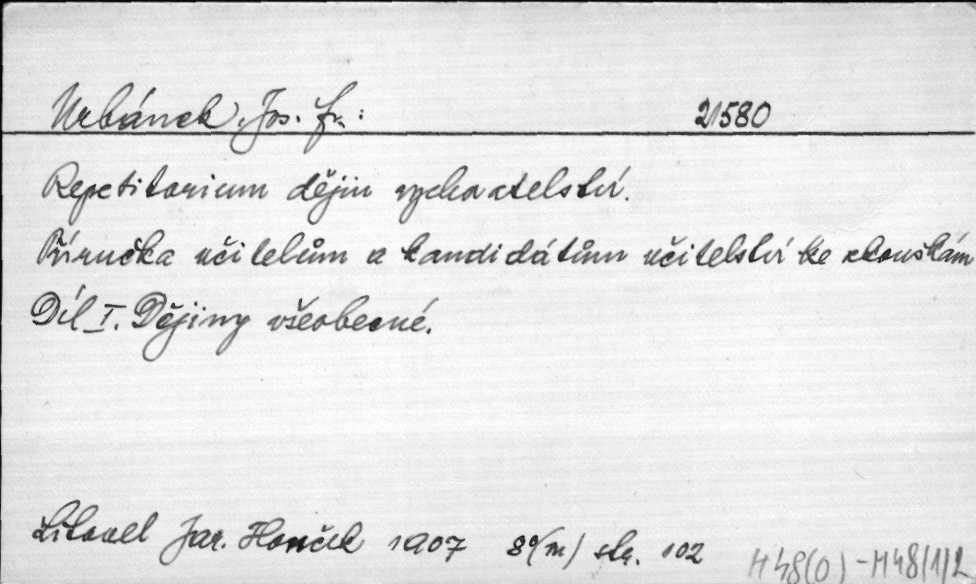 Urbánek, Jos. Fr.: 21580
Repetitorium dějin vychovatelství.
Příručka učitelům a kandidátům učitelství ke zkouškám
Díl I. Dějiny všeobecné.
Litovel Jar. Hončík 1907 8°(m) str. 102
H48(0)-H48/1/2